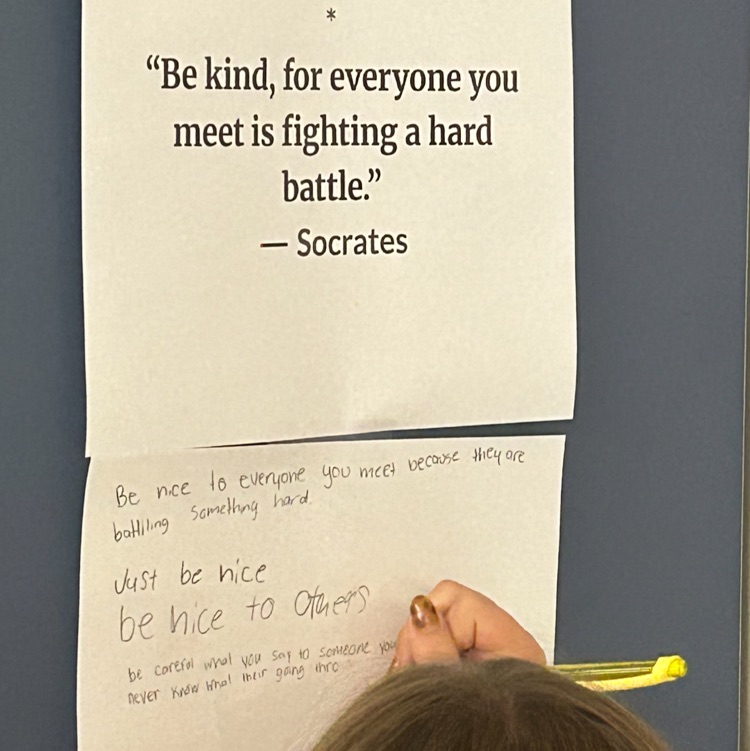 *
“Be kind, for everyone you
meet is fighting a hard
battle.”
— Socrates
Be nice to everyone you meet because they are
battiling something hard.
Just be nice
be nice to others
be careful what you say to someone you
never know what their going thro